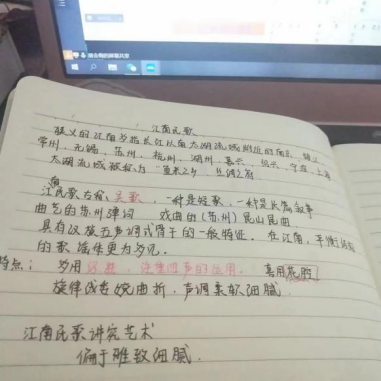 江南民歌
狭义的江南多指长江以南太湖流域附近的南京、镇江
常州、无锡、苏州、杭州、湖州、嘉兴、绍兴、宁波、上海
太湖流域被称为
江南
民歌古称吴歌,一种是短歌,一种是长篇叙事
曲艺的苏州弹词 戏曲的(苏州)昆山昆曲
具有汉族五声调式骨干的一般特征。在江南,平衡结构
的歌谣体更为多见。
特点: 多用 喜用花腔
旋律成套婉曲折,声调柔软细腻
江南民歌讲究艺术
偏于雅致细腻.